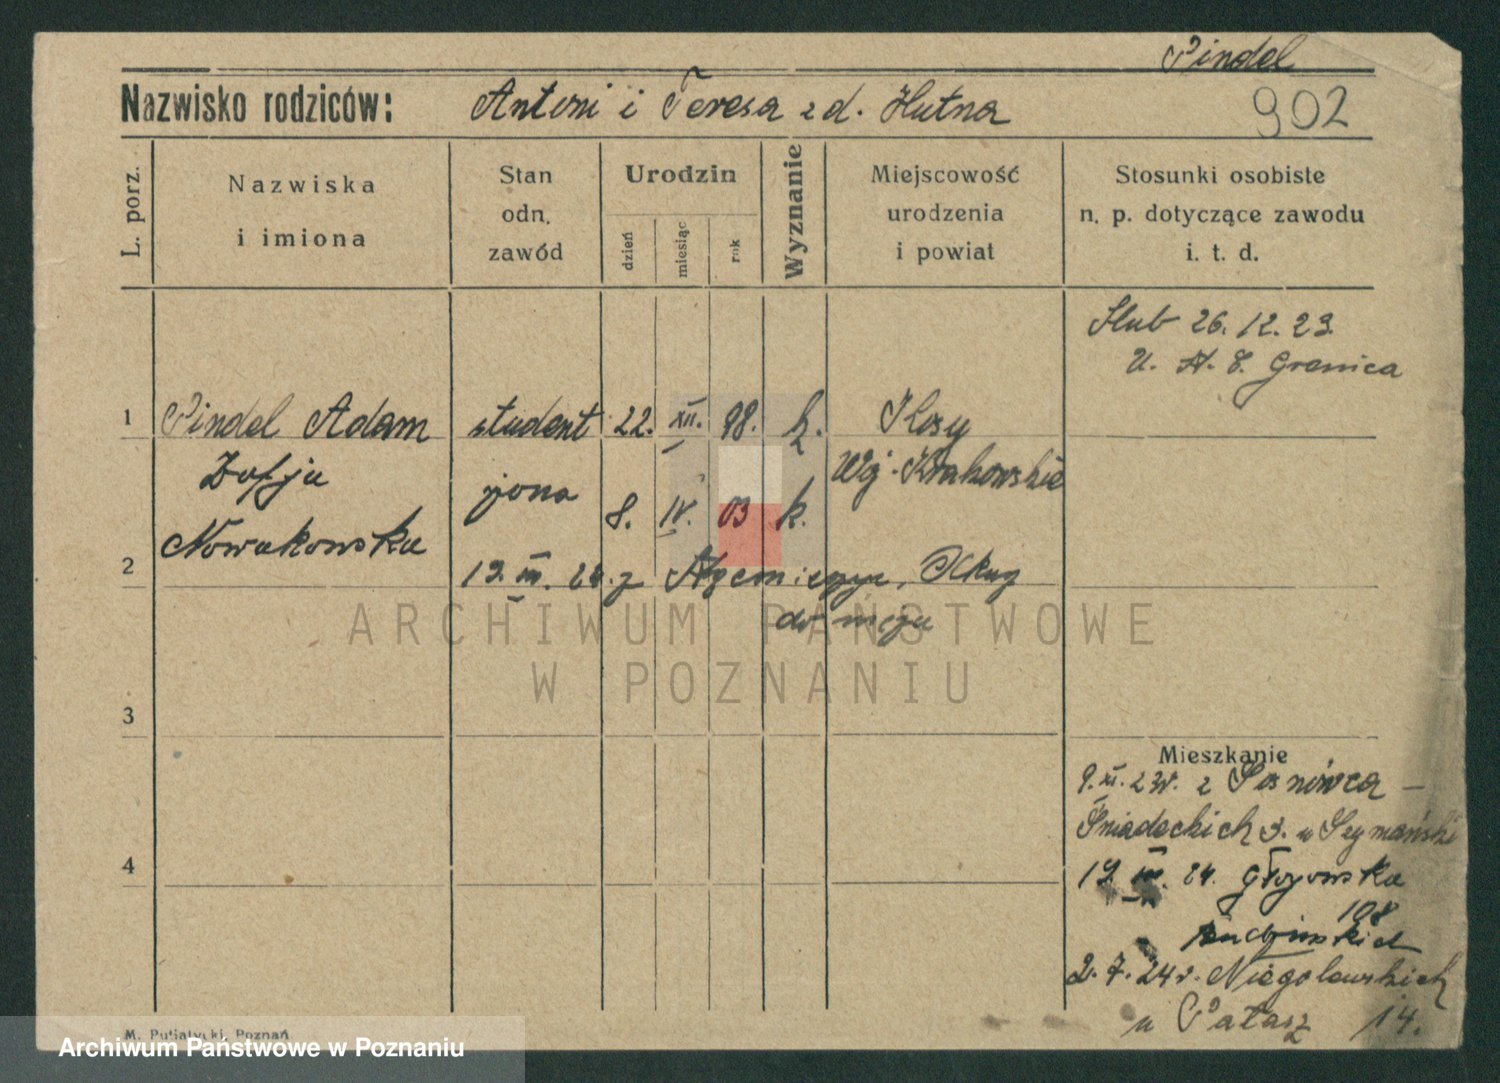 Pindel
Nazwisko rodziców: Antoni i Teresa z d. Hutna
902
L. porz.
Nazwiska
i imiona
Stan
odn.
zawód
Urodzin
dzień
miesiąc
rok
Wyznanie
Miejscowość
urodzenia
i powiat
Stosunki osobiste
n. p. dotyczące zawodu
i. t. d.
Ślub 26. 12. 23
Granica
1 Pindel Adam student 22. XII. 98. k.
Zofja żona 8. IV. 03 k. Woj. Krakowskie
Nowakowska
2 19. III. 24. z
do męża
ARCHIWUM PAŃSTWOWE
W POZNANIU
3
Mieszkanie
9. XI. 23r. z Sosnowca –
Śniadeckich u Szymański
4
19. III. 24. Głogowska
108
2. 7. 24r. Niegolewskich
u Pałasz 14.
M. Putiatycki, Poznań
Archiwum Państwowe w Poznaniu